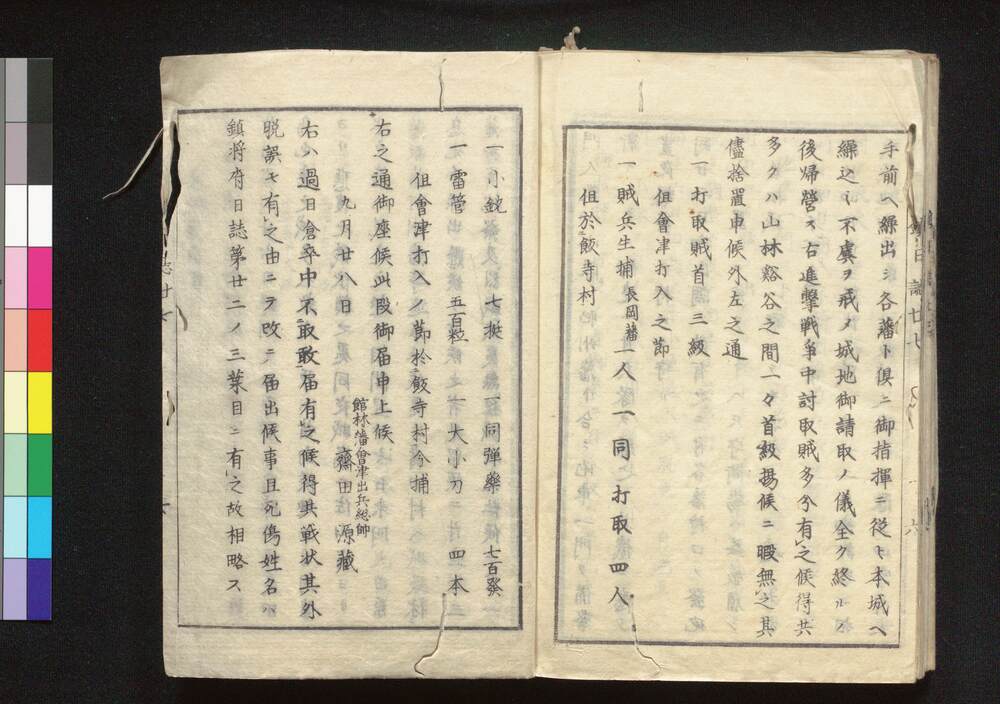 手前ヘ繰出シ各藩ト俱ニ御指揮ニ従ヒ本城ヘ
繰込シ不虞ヲ戒メ城地御請取ノ儀全ク終ルノ
後帰營ス右進撃戦争中討取賊多分有之候得共
多クハ山林谿谷之間一々首級揚候ニ暇無之其
儘捨置申候外左之通
一打取賊首三級
但會津打入之節
一賊兵生捕長岡藩一人一同打取四人
但於飯寺村
一小銃七挺一同弾藥七百發
一雷管五百粒一大小刀四本
但會津打入ノ節於飯寺村分捕
右之通御座候此段御届申上候
九月廿八日
館林藩會津出兵総帥
齋田源藏
右ハ過日倉卒中不取敢届有之候得共戦状其外
脱誤モ有之由ニヲ改ニ届出候事且死傷姓名ハ
鎮将府日誌第廿二ノ三葉目ニ有之故相略ス